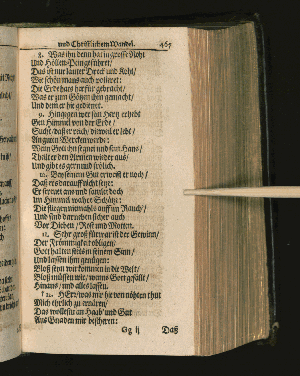 und Christlichem Wandel. 467
8. Was ihn denn hat in grosse Noht
Und Höllen-Pein geführet/
Das ist nur lauter Dreck und Koht/
Wie schön mans auch polieret:
Die Erd heraus hat für gebracht/
Was er zum Götzen ihm gemacht/
Und dem er hie gedienet.
9. Hingegen wer sein Hertz erhebt
Gen Himmel von der Erde/
Sucht daß er reich/ dieweil er lebt/
An guten Wercken werde:
Wem Gott ihn segnet und sein Hans/
Theilt er den Armen wieder aus/
Und gibt es gern und frölich.
10. Bey seinem Gut erweist er noch/
Daß ers darauff nicht setze:
Er streuet aus und samlet doch
Im Himmel wahre Schätze:
Die fliegen niemahls auff im Rauch/
Und sind darneben sicher auch
Vor Dieben/ Rost und Motten.
11. Sehr groß fürwar ist der Gewinn/
Der Frömmigkeit obligen/
Gott halten stets in seinem Sinn/
Und lassen ihm genügen:
Bloß seyn wir kommen in die Welt/
Bloß müssen wir/ wenns Gott gefällt/
Hinaus/ und alles lassen.
12. HErr/ was mir hie von nöhten thut
Mich ehrlich zu ernären/
Das wollest du an Haab' und Gut
Aus Gnaden mir bescheren:
Gg ij Daß